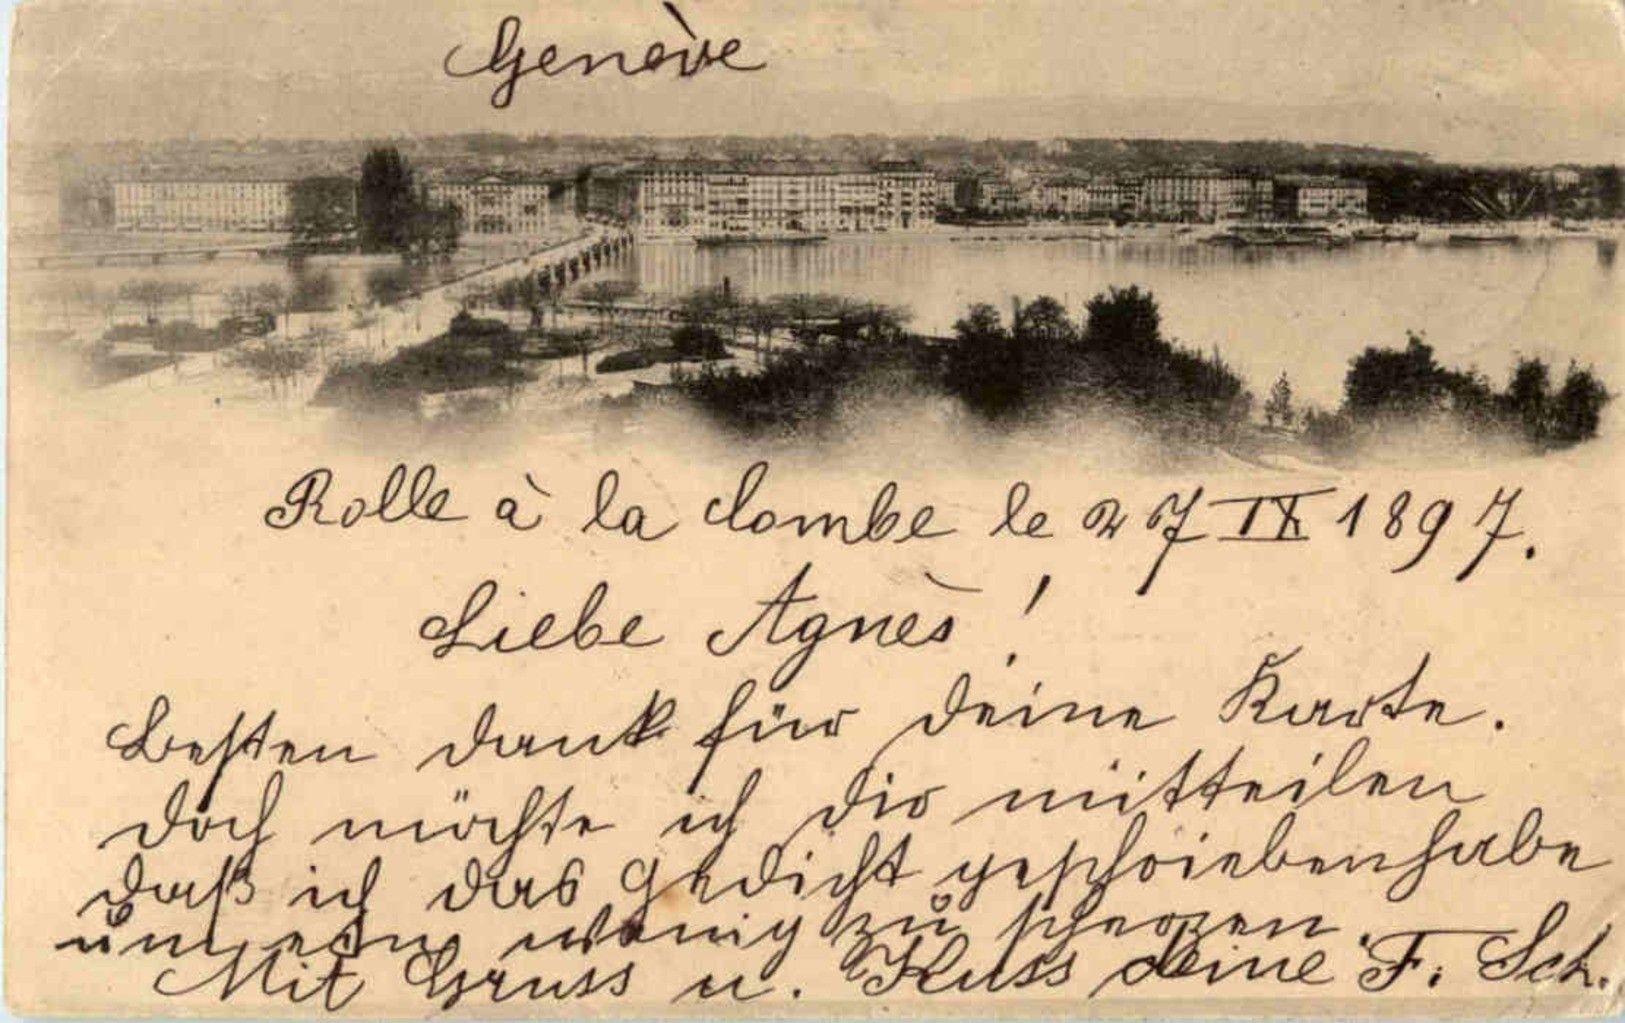 Genève
Rolle à la Combe le 27 IX 1897.
Liebe Agnès!
Besten dank für deine Karte.
doch möchte ich dir mitteilen
daß ich das Gedicht geschrieben habe
um ein wenig zu scherzen.
Mit Gruss u. Kuss deine F. Sch.